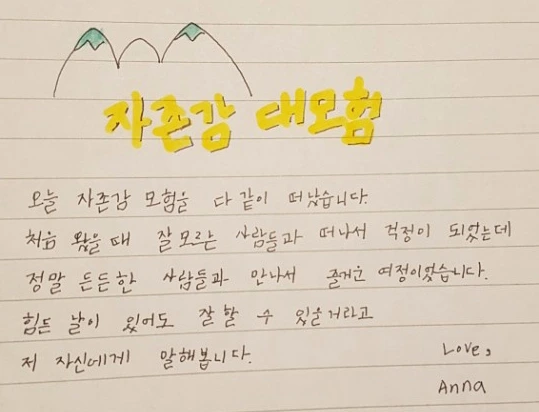 자존감 대모험
오늘 자존감 모험을 다 같이 떠났습니다.
처음 왔을 때 잘 모르는 사람들과 떠나서 걱정이 되었는데
정말 든든한 사람들과 만나서 즐거운 여정이었습니다.
힘든 날이 있어도 잘 할 수 있을거라고
저 자신에게 말해봅니다.
Love,
Anna